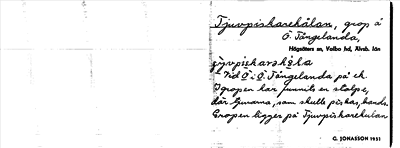 Tjuvpiskarekålan, grop å
Ö. Tångelanda,
Högsäters sn, Valbo hd, Älvsb. län
Vid Ö i Ö. Tångelanda på ek.
I gropen har funnits en stolpe,
där tjuvarna, som skulle piskas, bands.
Gropen ligger på Tjuvpiskarekulan
G. JONASSON 1951